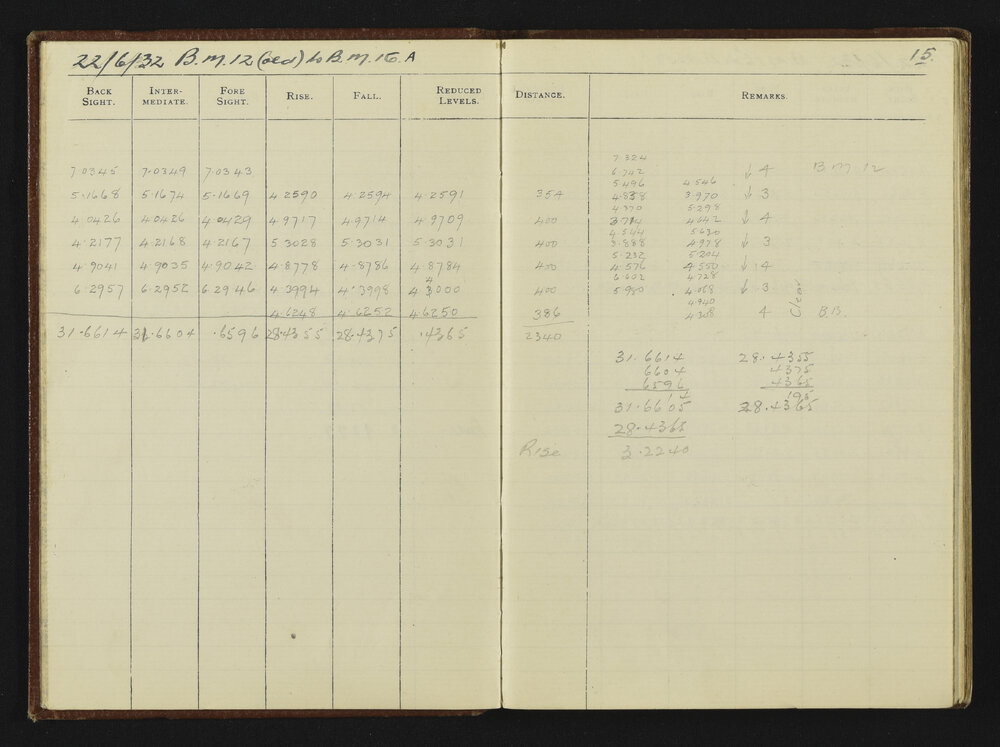 22/6/32 B.M.12 (old) to B.M.15.A 15.
BACK SIGHT. INTER-MEDIATE. FORE SIGHT. RISE. FALL. REDUCED LEVELS. DISTANCE. REMARKS.
7.324
7.0345 7.0349 7.0343 6.742 ↓ 4 B M 12
5.496 4.546
5.1668 5.1674 5.1669 4.2590 4.2594 4.2591 354 4.838 3.970 ↓ 3
4.370 5.298
4.0426 4.0426 4.0429 4.9717 4.9714 4.9709 400 3.714 4.642 ↓ 4
4.544 5.630
4.2177 4.2168 4.2167 5.3028 5.3031 5.3031 400 3.888 4.978 ↓ 3
5.232 5.204
4.9041 4.9035 4.9042 4.8778 4.8786 4.8784 400 4.576 4.550 ↓ 4
6.602 4.728
6.2957 6.2952 6.2946 4.3994 4.3998 4.4000 400 5.980 4.068 ↓ 3
4.940
4.6248 4.6252 4.6250 386 4.308 4 Clear B.B.
31.6614 31.6604 .6596 28.4355 28.4375 .4365 2340
31.6614 28.4355
6604 4375
6596 4365
14 195
31.6605 28.4365
28.4365
Rise 3.2240